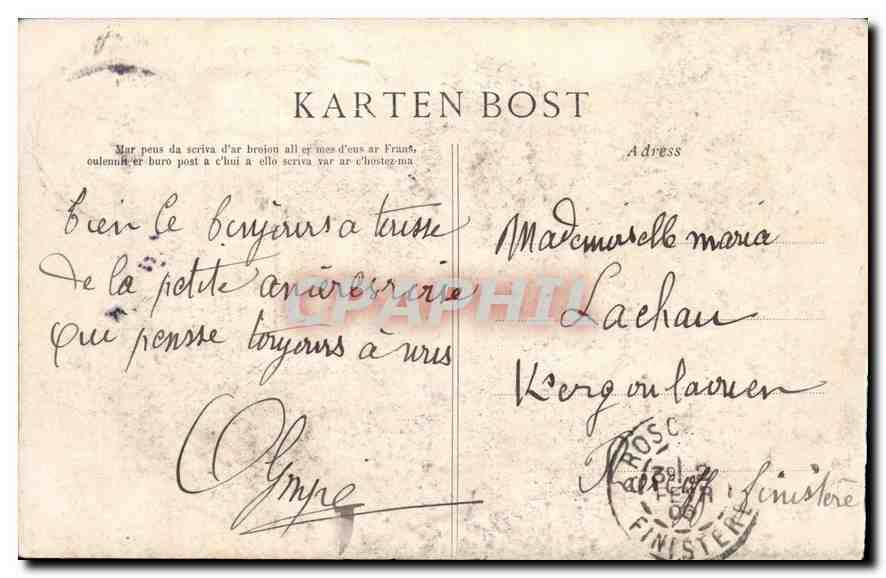 KARTEN BOST
Mar peus da scriva d'ar broiou all er mes d'eus ar Frans,
oulennit er buro post a c'hui a ello scriva var ar c'hostez-ma
Adress
bien le bonjours a tousse
de la petite anieresroise
Qui pensse toujours à vous
Olympe
Mademoiselle maria
Lachau
Kergoulaouen
Roscoff finistère
ROSC
FEVR
06
FINISTERE
CPAPHIL